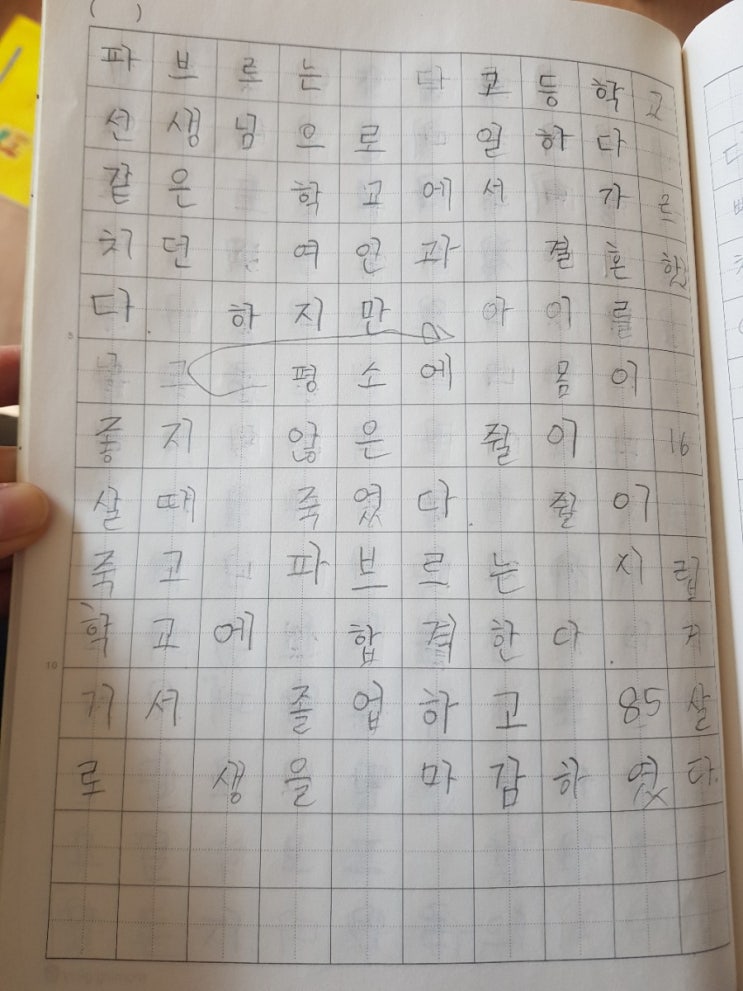 ( )
파브르는 다 고등학교
선생님으로 일하다
같은 학교에서 가르
치던 여인과 결혼한
다 하지만 아이를
평소에 몸이
좋지 않은 쥘이 16
살때 죽었다. 쥘이
죽고 파브르는 지립
학교에 합격한다. 거
기서 졸업하고 85살
로 생을 마감하였다.
5
10